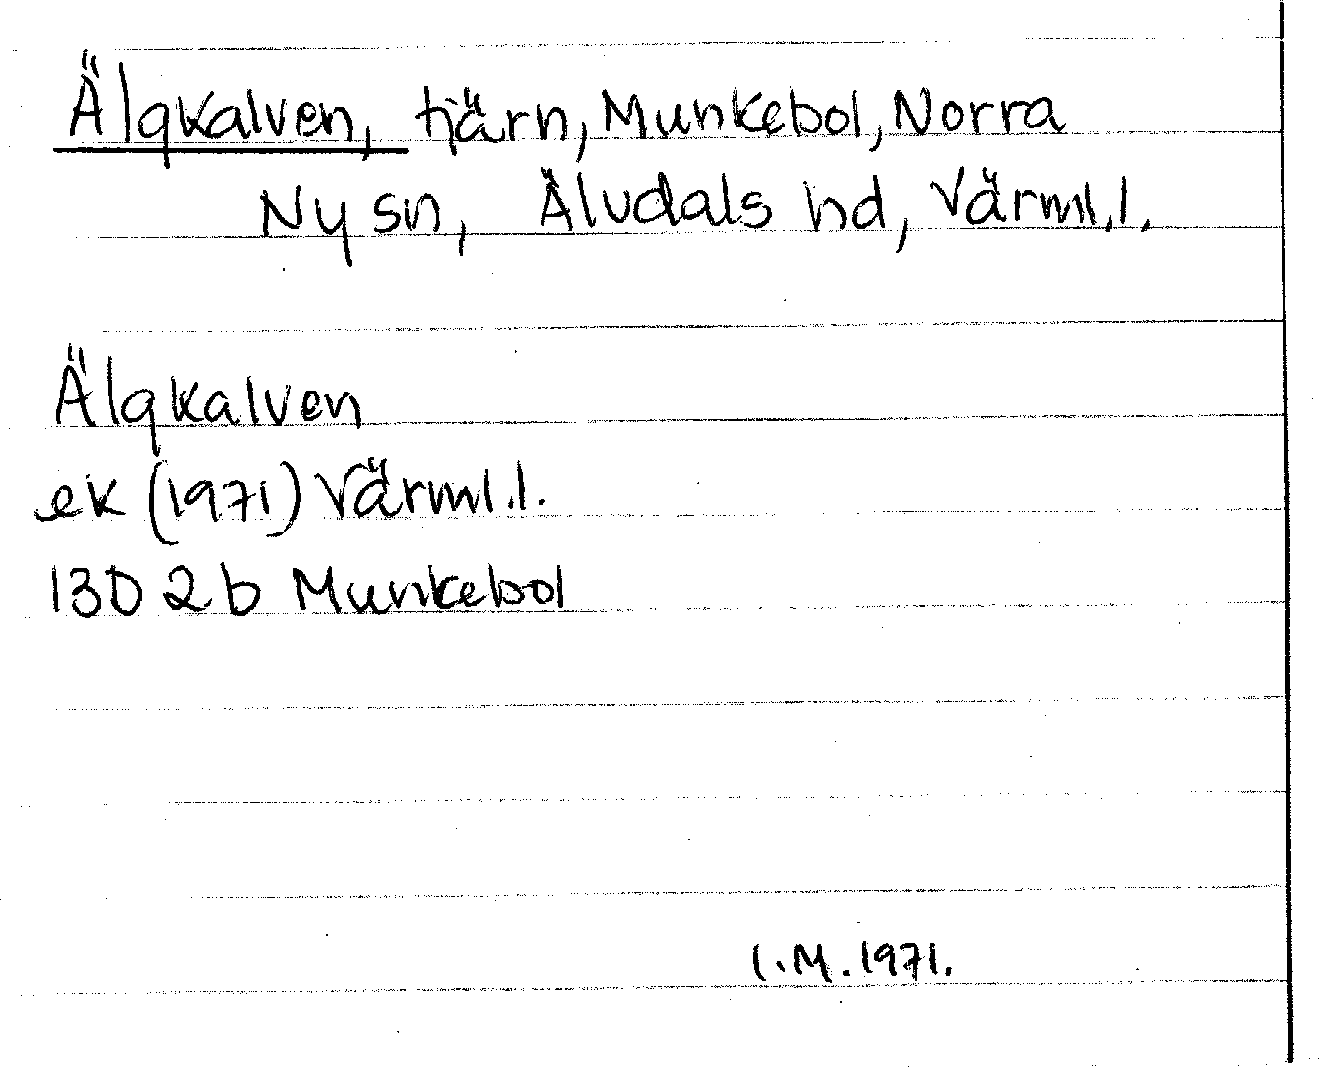 Älgkalven, tjärn, Munkebol, Norra
Ny sn, Älvdals hd, Värml.l.
Älgkalven
ek (1971) Värml.l.
13D 2b Munkebol
I.M. 1971.